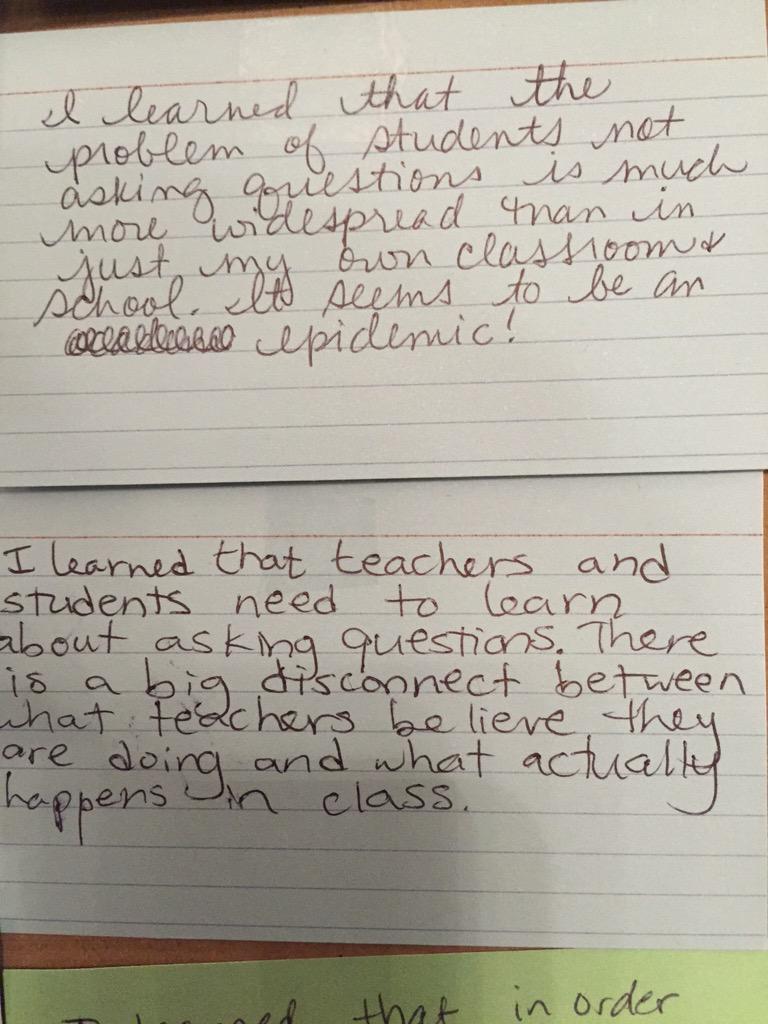 I learned that the
problem of students not
asking questions is much
more widespread than in
just my own classroom &
school. It seems to be an
epidemic!
I learned that teachers and
students need to learn
about asking questions. There
is a big disconnect between
what teachers believe they
are doing and what actually
happens in class.
I learned that in order